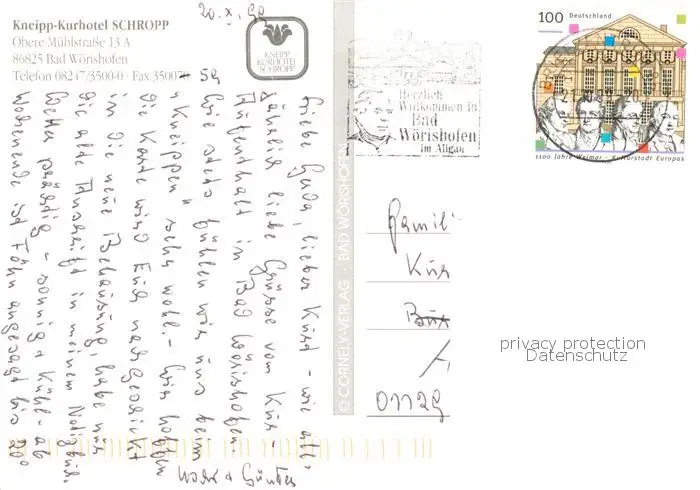 Kneipp-Kurhotel SCHROPP
Obere Mühlstraße 13 A
86825 Bad Wörishofen
Telefon 08247/3500-0 · Fax 3500
59
20. X.
KNEIPP
KURHOTEL
SCHROPP
Herzlich
Willkommen in
Bad
Wörishofen
im Allgäu
100 Deutschland
1100 Jahre Weimar - Kulturstadt Europas
Liebe lieber Kurt - wie all-
jährlich liebe Grüsse vom Kur-
Aufenthalt in Bad Wörishofen.
Wie stets fühlen wir uns beim
"Kneippen" sehr wohl. - Wir hoffen
die Karte wird Euch nachgeschickt
in die neue Behausung, habe nur
die alte Anschrift in meinem
Wetter prächtig - sonnig + kühl - ab
Wochenende ist Föhn angesagt bis 20°
+ Günter
© CORNELY-VERLAG · BAD WÖRISHOFEN
Famili
Kur
01129
privacy protection
Datenschutz